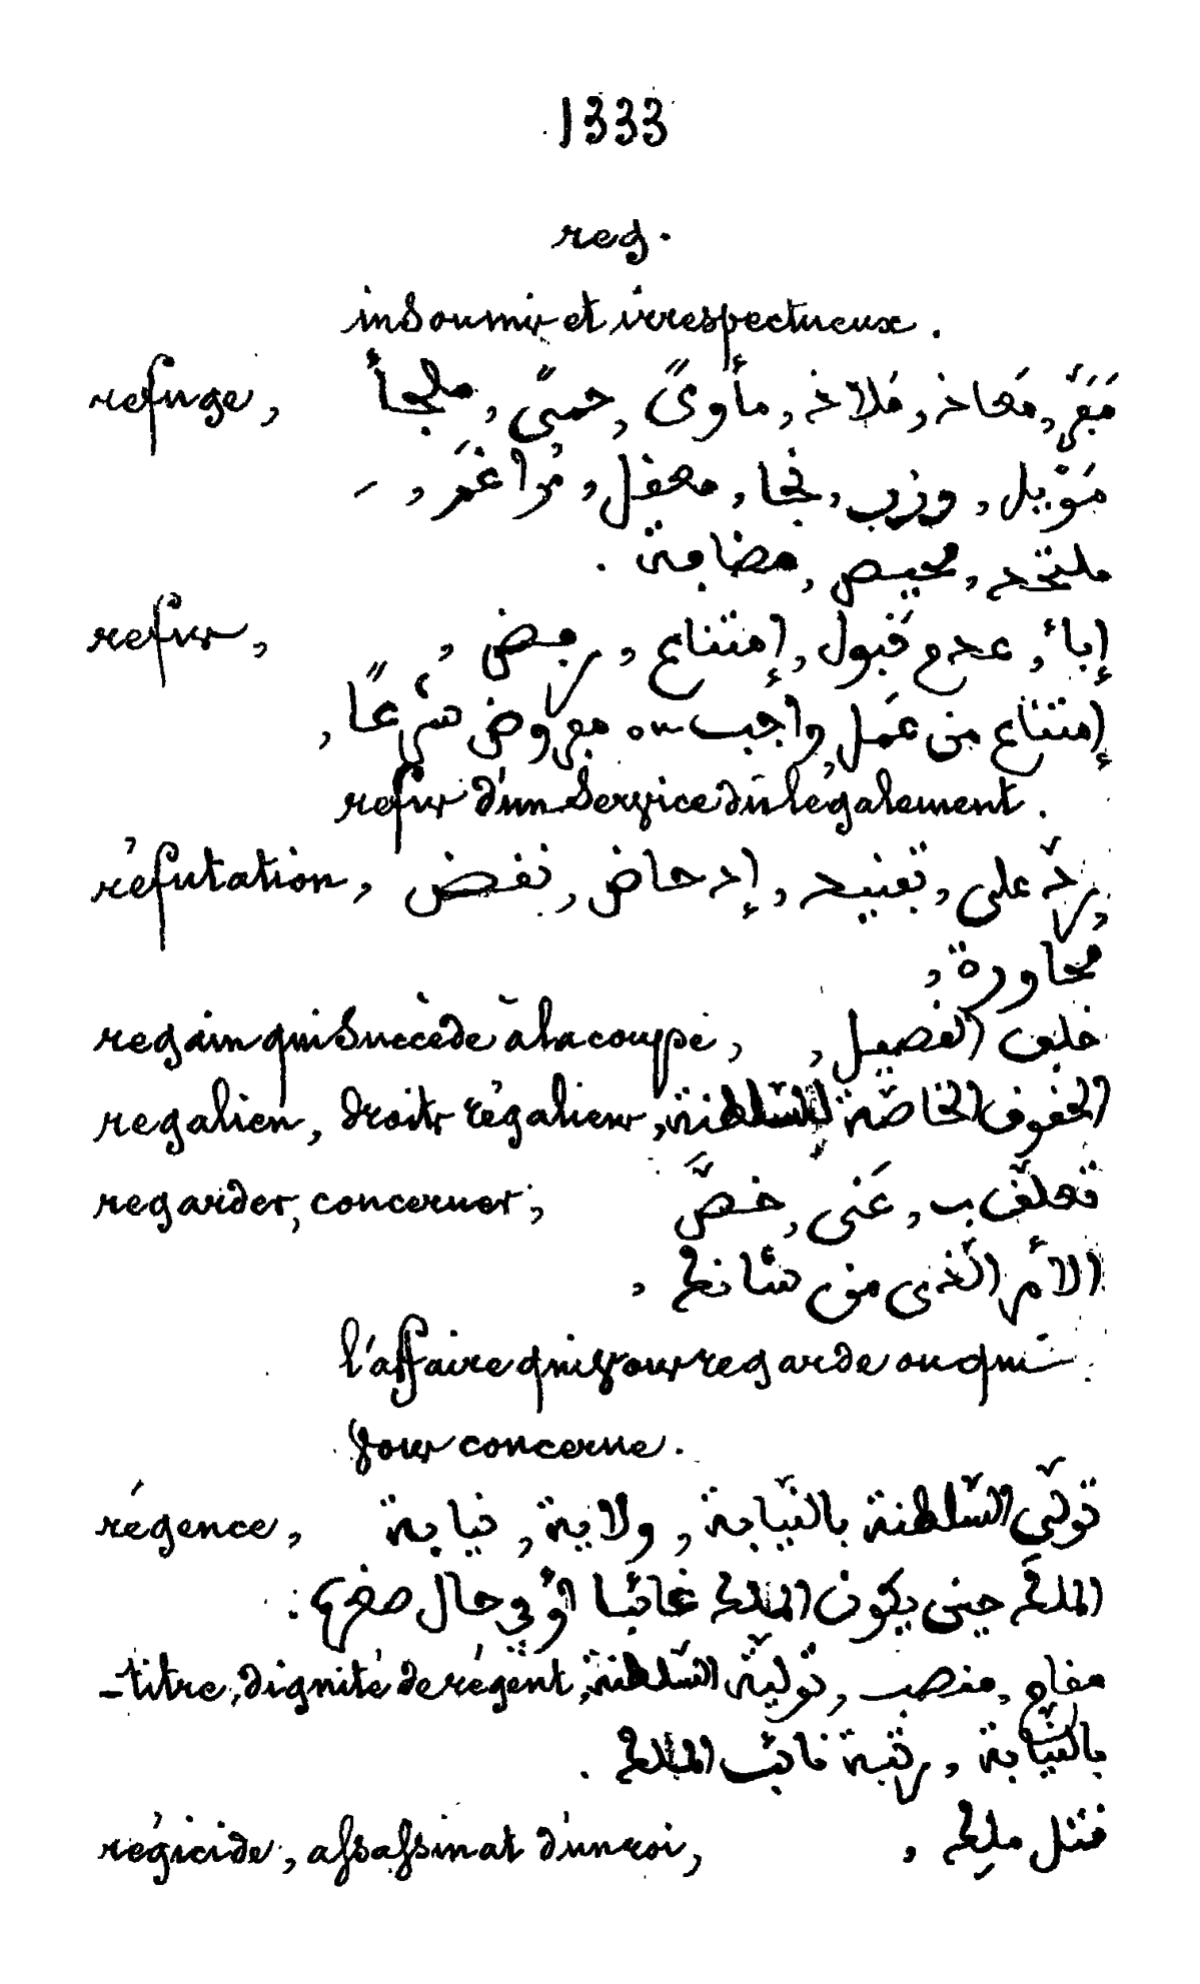 1333
reg.
insoumis et irrespectueux.
refuge, ملجأ, حمىً, مأوىً, مَلاذ, مَعاذ, مَفَرّ
مَوْيل, وزر, نجا, معقل, مُراغَم, -
ملتحد, محيص, مضافة.
refus, إباء, عدم قَبول, إمتناع, رفض,
إمتناع من عَمَل واجب ou مفروض شرعًا,
refus d'un service dû légalement.
réfutation, ردّ على, تفنيد, إدحاض, نقض,
مُحاورة,
regain qui succède à la coupe, خلف القصيل,
regalien, droits régaliens, الحقوق الخاصّة للسّلطنة
regarder, concerner, تعلّق ب, عَنى, خصَّ
الأمر الّذى من شانك,
l'affaire qui vous regarde ou qui
vous concerne.
régence, تولّى السّلطنة بالنّيابة, ولاية, نيابة
الملك حين يكون الملك غائبا أو في حال صغره:
-titre, dignité de régent, مقام, منصب, توليّة السّلطنة
بالنّيابة, رتبة نائب الملك.
régicide, assassinat d'un roi, قتل ملِك,